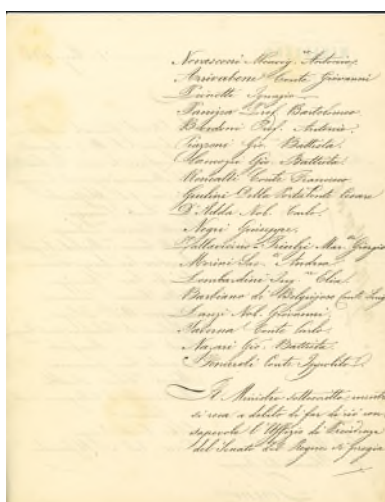 Novasconi Monsig. Antonio,
Arrivabene Conte Giovanni
Prinetti Ignazio
Panizza Prof. Bartolomeo
Bordoni Prof. Antonio
Piazzoni Gio. Battista
Gio. Battista
Roncalli Conte Francesco
Giulini Della Porta Conte Cesare
D'Adda Nob. Carlo
Negri Giuseppe
Pallavicino-Trivulzio Mar. Giorgio
Andrea
Lombardini Ing. Elia
Barbiano di Belgiojoso Conte Luigi
Lauzi Nob. Giovanni
Taverna Conte Carlo
Nazari Gio. Battista
Conte Ippolito
Il Ministro sottoscritto
si reca a debito di far di ciò con
sapevole l'Uffizio di Presidenza
del Senato del Regno, si pregia